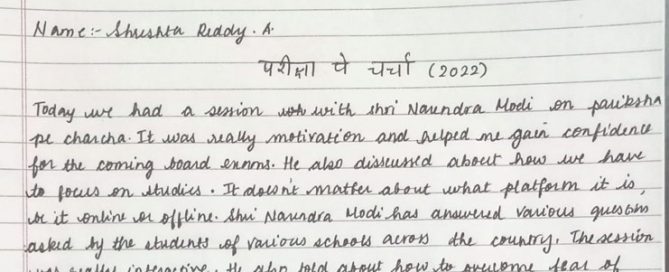 Name:- Shreshta Reddy. A.
परीक्षा पे चर्चा (2022)
Today we had a session with shri Narendra Modi on pariksha
pe charcha. It was really motivation and helped me gain confidence
for the coming board exams. He also disscussed about how we have
to focus on studies. It doesn't matter about what platform it is,
be it online or offline. Shri Narendra Modi has answered various question
asked by the students of various schools across the country. The session
was really interactive. He also told about how to overcome fear of